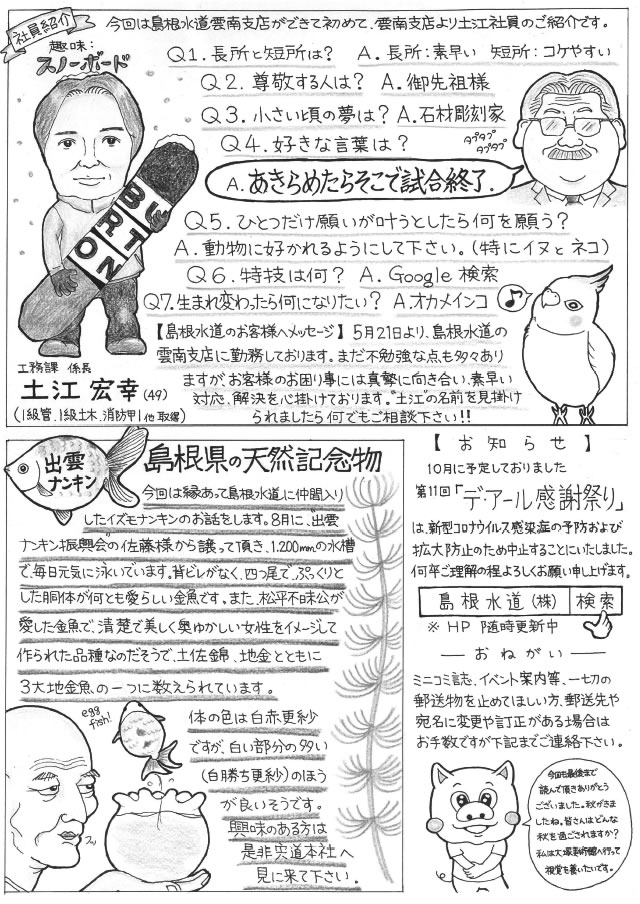 社員紹介
今回は島根水道雲南支店ができて初めて、雲南支店より土江社員のご紹介です。
趣味:
スノーボード
Q1. 長所と短所は? A. 長所:素早い 短所:コケやすい
Q2. 尊敬する人は? A. 御先祖様
Q3. 小さい頃の夢は? A. 石材彫刻家
Q4. 好きな言葉は?
タプタプ
タプタプ
A. あきらめたらそこで試合終了.
BURTON
Q5. ひとつだけ願いが叶うとしたら何を願う?
A. 動物に好かれるようにして下さい。(特にイヌとネコ)
Q6. 特技は何? A. Google 検索
Q7. 生まれ変わったら何になりたい? A. オカメインコ
【島根水道のお客様へメッセージ】5月21日より、島根水道の
雲南支店に勤務しております。まだ不勉強な点も多々あり
ますが、お客様のお困り事には真摯に向き合い、素早い
対応、解決を心掛けております。"土江"の名前を見掛け
られましたら何でもご相談下さい!!
工務課 係長
土江 宏幸 (49)
(1級管、1級土木、消防甲1 他 取得)
出雲
ナンキン
島根県の天然記念物
今回は縁あって島根水道に仲間入り
したイズモナンキンのお話をします。8月に、"出雲
ナンキン振興会"の佐藤様から譲って頂き、1,200mmの水槽
で、毎日元気に泳いでいます。背ビレがなく、四つ尾で、ぷっくりと
した胴体が何とも愛らしい金魚です。また、松平不昧公が
愛した金魚で、清楚で美しく奥ゆかしい女性をイメージして
作られた品種なのだそうで、土佐錦、地金とともに
3大地金魚の一つに数えられています。
egg
fish!
フッ
体の色は白赤更紗
ですが、白い部分の多い
(白勝ち更紗)のほう
が良いそうです。
興味のある方は
是非宍道本社へ
見に来て下さい。
【お知らせ】
10月に予定しておりました
第11回「デ・アール感謝祭り」
は、新型コロナウイルス感染症の予防および
拡大防止のため中止することにいたしました。
何卒ご理解の程よろしくお願い申し上げます。
島根水道(株) 検索
※ HP 随時更新中
おねがい
ミニコミ誌、イベント案内等、一切の
郵送物を止めてほしい方、郵送先や
宛名に変更や訂正がある場合は
お手数ですが下記までご連絡下さい。
今回も最後まで
読んで頂きありがとう
ございました。秋がきま
したね。皆さんはどんな
秋を過ごされますか?
私は大塚美術館へ行って
視覚を養いたいです。